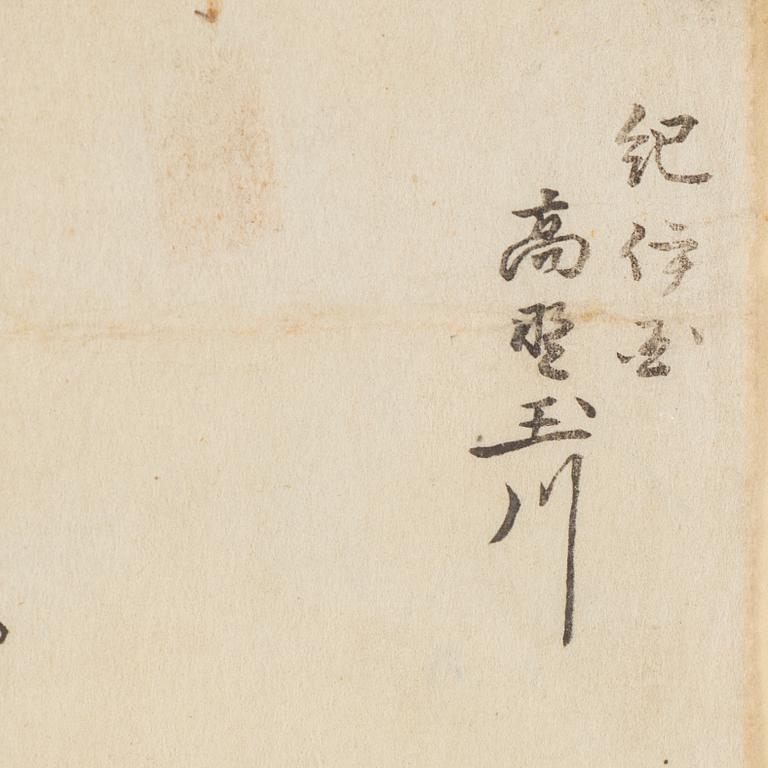 紀伊国
高野玉川